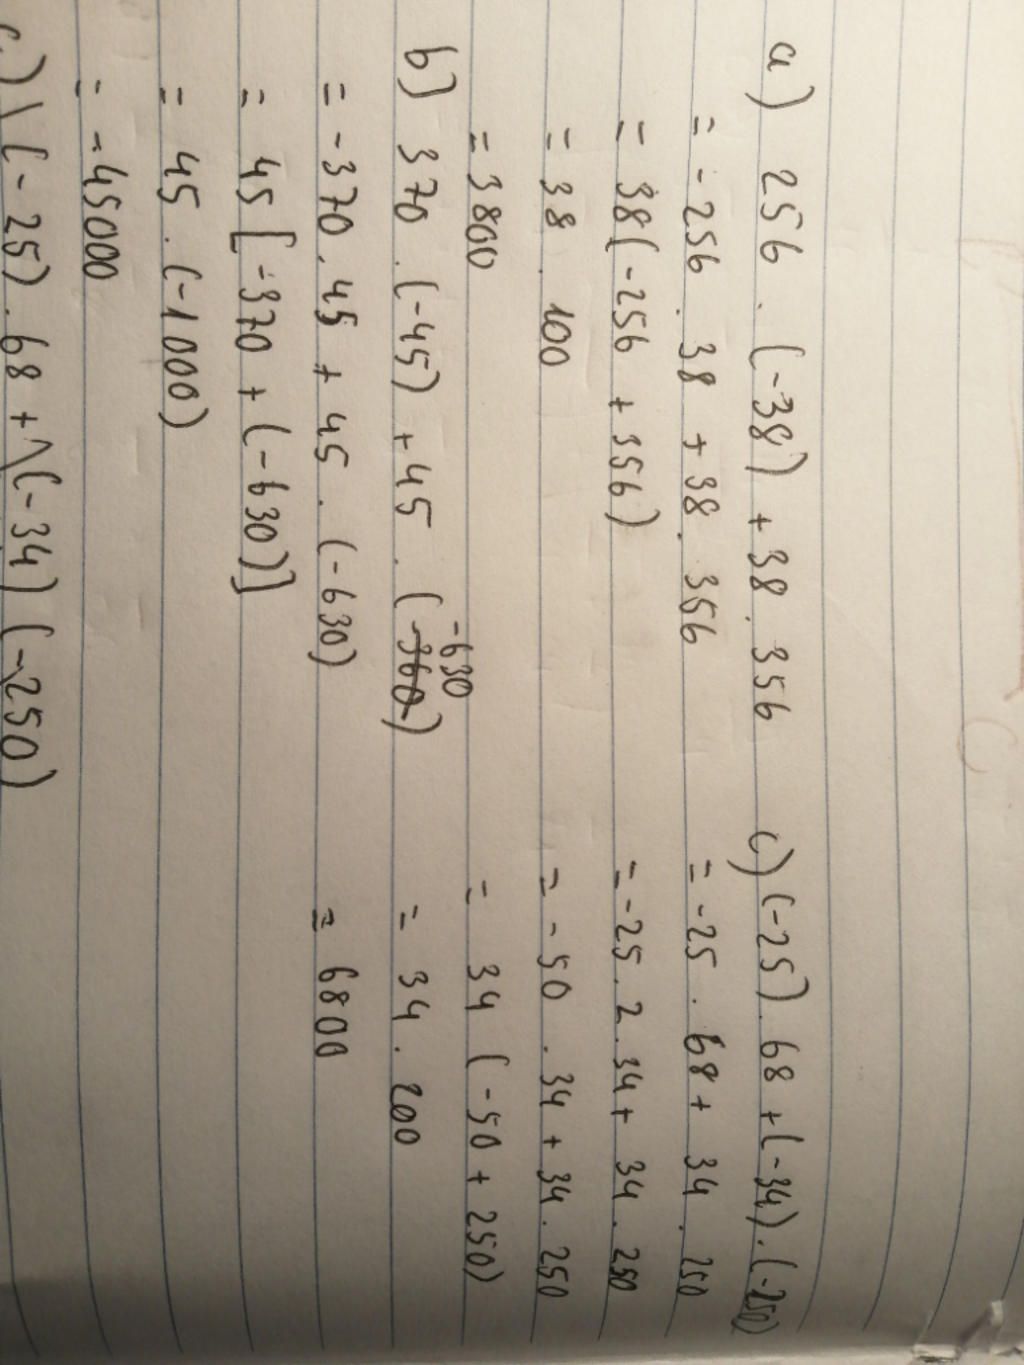 a) 256 . (-38) + 38 . 356
= -256 . 38 + 38 . 356
= 38 (-256 + 356)
= 38 . 100
= 3800
b) 370 . (-45) + 45 . (-360) -630
= -370 . 45 + 45 . (-630)
= 45 [-370 + (-630)]
= 45 . (-1000)
= -45000
c) (-25) . 68 + (-34) (-250)
c) (-25) . 68 + (-34) . (-250)
= -25 . 68 + 34 . 250
= -25 . 2 . 34 + 34 . 250
= -50 . 34 + 34 . 250
= 34 (-50 + 250)
= 34 . 200
= 6800